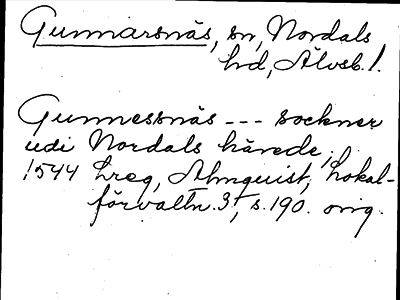 Gunnarsnäs, sn, Nordals
hd, Älvsb. l.
Gunnessnäs --- sockner
udi Nordals härede,
1544 Lreg, Almquist, Lokal-
förvaltn. 3, s. 190. orig.